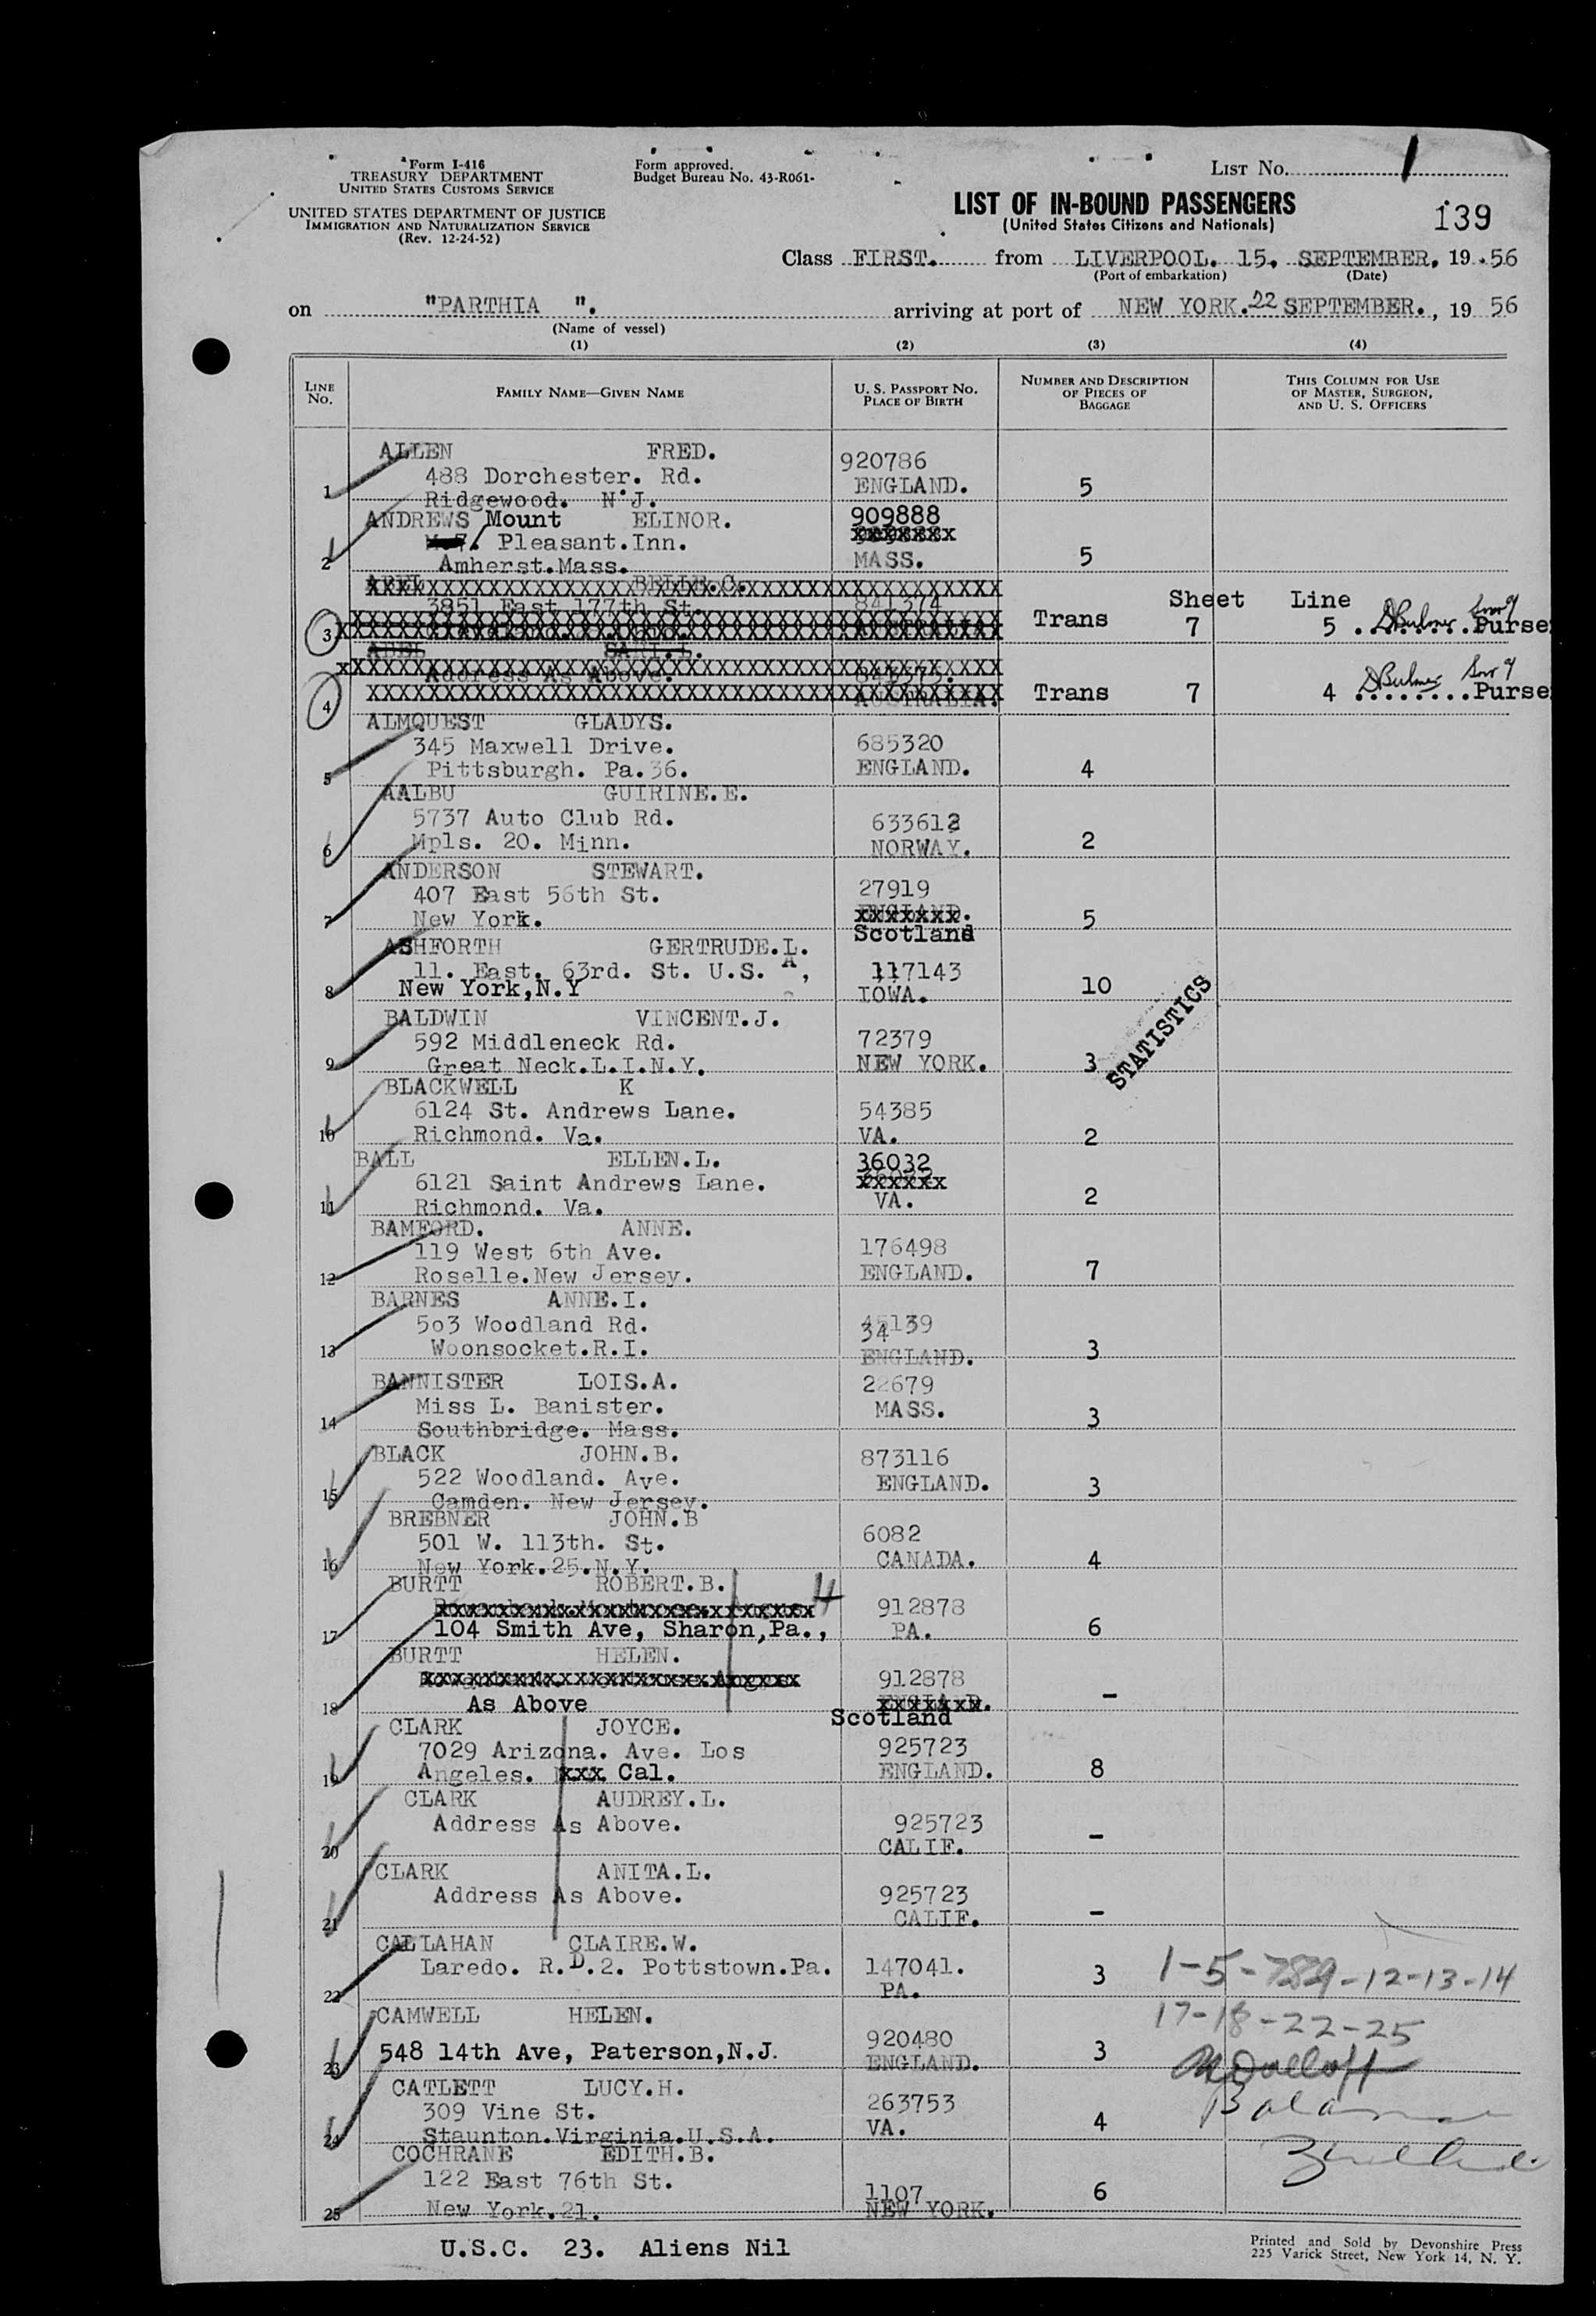 Form I-416
TREASURY DEPARTMENT
UNITED STATES CUSTOMS SERVICE
UNITED STATES DEPARTMENT OF JUSTICE
IMMIGRATION AND NATURALIZATION SERVICE
(Rev. 12-24-52)
Form approved.
Budget Bureau No. 43-R061-
LIST NO. 1
LIST OF IN-BOUND PASSENGERS
(United States Citizens and Nationals)
139
Class FIRST. from LIVERPOOL. 15. SEPTEMBER, 19.56
(Port of embarkation) (Date)
on "PARTHIA ". arriving at port of NEW YORK. 22 SEPTEMBER., 19 56
(Name of vessel)
(1) (2) (3) (4)
LINE NO.
FAMILY NAME—GIVEN NAME
U. S. PASSPORT NO.
PLACE OF BIRTH
NUMBER AND DESCRIPTION
OF PIECES OF
BAGGAGE
THIS COLUMN FOR USE
OF MASTER, SURGEON,
AND U. S. OFFICERS
ALLEN FRED.
488 Dorchester. Rd. 920786
1 Ridgewood. N.J. ENGLAND. 5
ANDREWS Mount ELINOR. 909888
Pleasant.Inn.
2 Amherst.Mass. MASS. 5
ABEL BELLE.C.
3851 East 177th St. 841374
Sheet Line
3 Trans 7 5 ........Purse
Address As Above. 841375.
4 AUSTRALIA. Trans 7 4 ........Purse
ALMQUEST GLADYS.
345 Maxwell Drive. 685320
5 Pittsburgh. Pa.36. ENGLAND. 4
AALBU GUIRINE.E.
5737 Auto Club Rd. 633612
6 Mpls. 20. Minn. NORWAY. 2
ANDERSON STEWART.
407 East 56th St. 27919
ENGLAND.
7 New York. Scotland 5
ASHFORTH GERTRUDE.L.
11. East. 63rd. St. U.S. A, 117143
8 New York,N.Y IOWA. 10
BALDWIN VINCENT.J.
592 Middleneck Rd. 72379
9 Great Neck.L.I.N.Y. NEW YORK. 3
STATISTICS
BLACKWELL K
6124 St. Andrews Lane. 54385
10 Richmond. Va. VA. 2
BALL ELLEN.L. 36032
6121 Saint Andrews Lane. xxxxxx
11 Richmond. Va. VA. 2
BAMFORD. ANNE.
119 West 6th Ave. 176498
12 Roselle.New Jersey. ENGLAND. 7
BARNES ANNE.I.
503 Woodland Rd. 34139
13 Woonsocket.R.I. ENGLAND. 3
BANNISTER LOIS.A. 22679
Miss L. Banister. MASS.
14 Southbridge. Mass. 3
BLACK JOHN.B. 873116
522 Woodland. Ave. ENGLAND.
15 Camden. New Jersey. 3
BREBNER JOHN.B
501 W. 113th. St. 6082
16 New York.25.N.Y. CANADA. 4
BURTT ROBERT.B. 4
xxxxxxxxxxxxxxxxxxxxxxxxx 912878
17 104 Smith Ave, Sharon,Pa., PA. 6
BURTT HELEN.
xxxxxxxxxxxxxxxxxxxxxxxxx 912878
18 As Above xxxxxxx. -
Scotland
CLARK JOYCE.
7029 Arizona. Ave. Los 925723
19 Angeles. xxx Cal. ENGLAND. 8
CLARK AUDREY.L.
Address As Above. 925723
20 CALIF. -
CLARK ANITA.L.
Address As Above. 925723
21 CALIF. -
CALLAHAN CLAIRE.W.
Laredo. R.D.2. Pottstown.Pa. 147041.
22 PA. 3 1-5-789-12-13-14
CAMWELL HELEN. 17-18-22-25
548 14th Ave, Paterson,N.J. 920480
23 ENGLAND. 3
CATLETT LUCY.H.
309 Vine St. 263753
24 Staunton.Virginia.U.S.A. VA. 4
COCHRANE EDITH.B.
122 East 76th St. 1107
25 New York.21. NEW YORK. 6
U.S.C. 23. Aliens Nil
Printed and Sold by Devonshire Press
225 Varick Street, New York 14, N. Y.